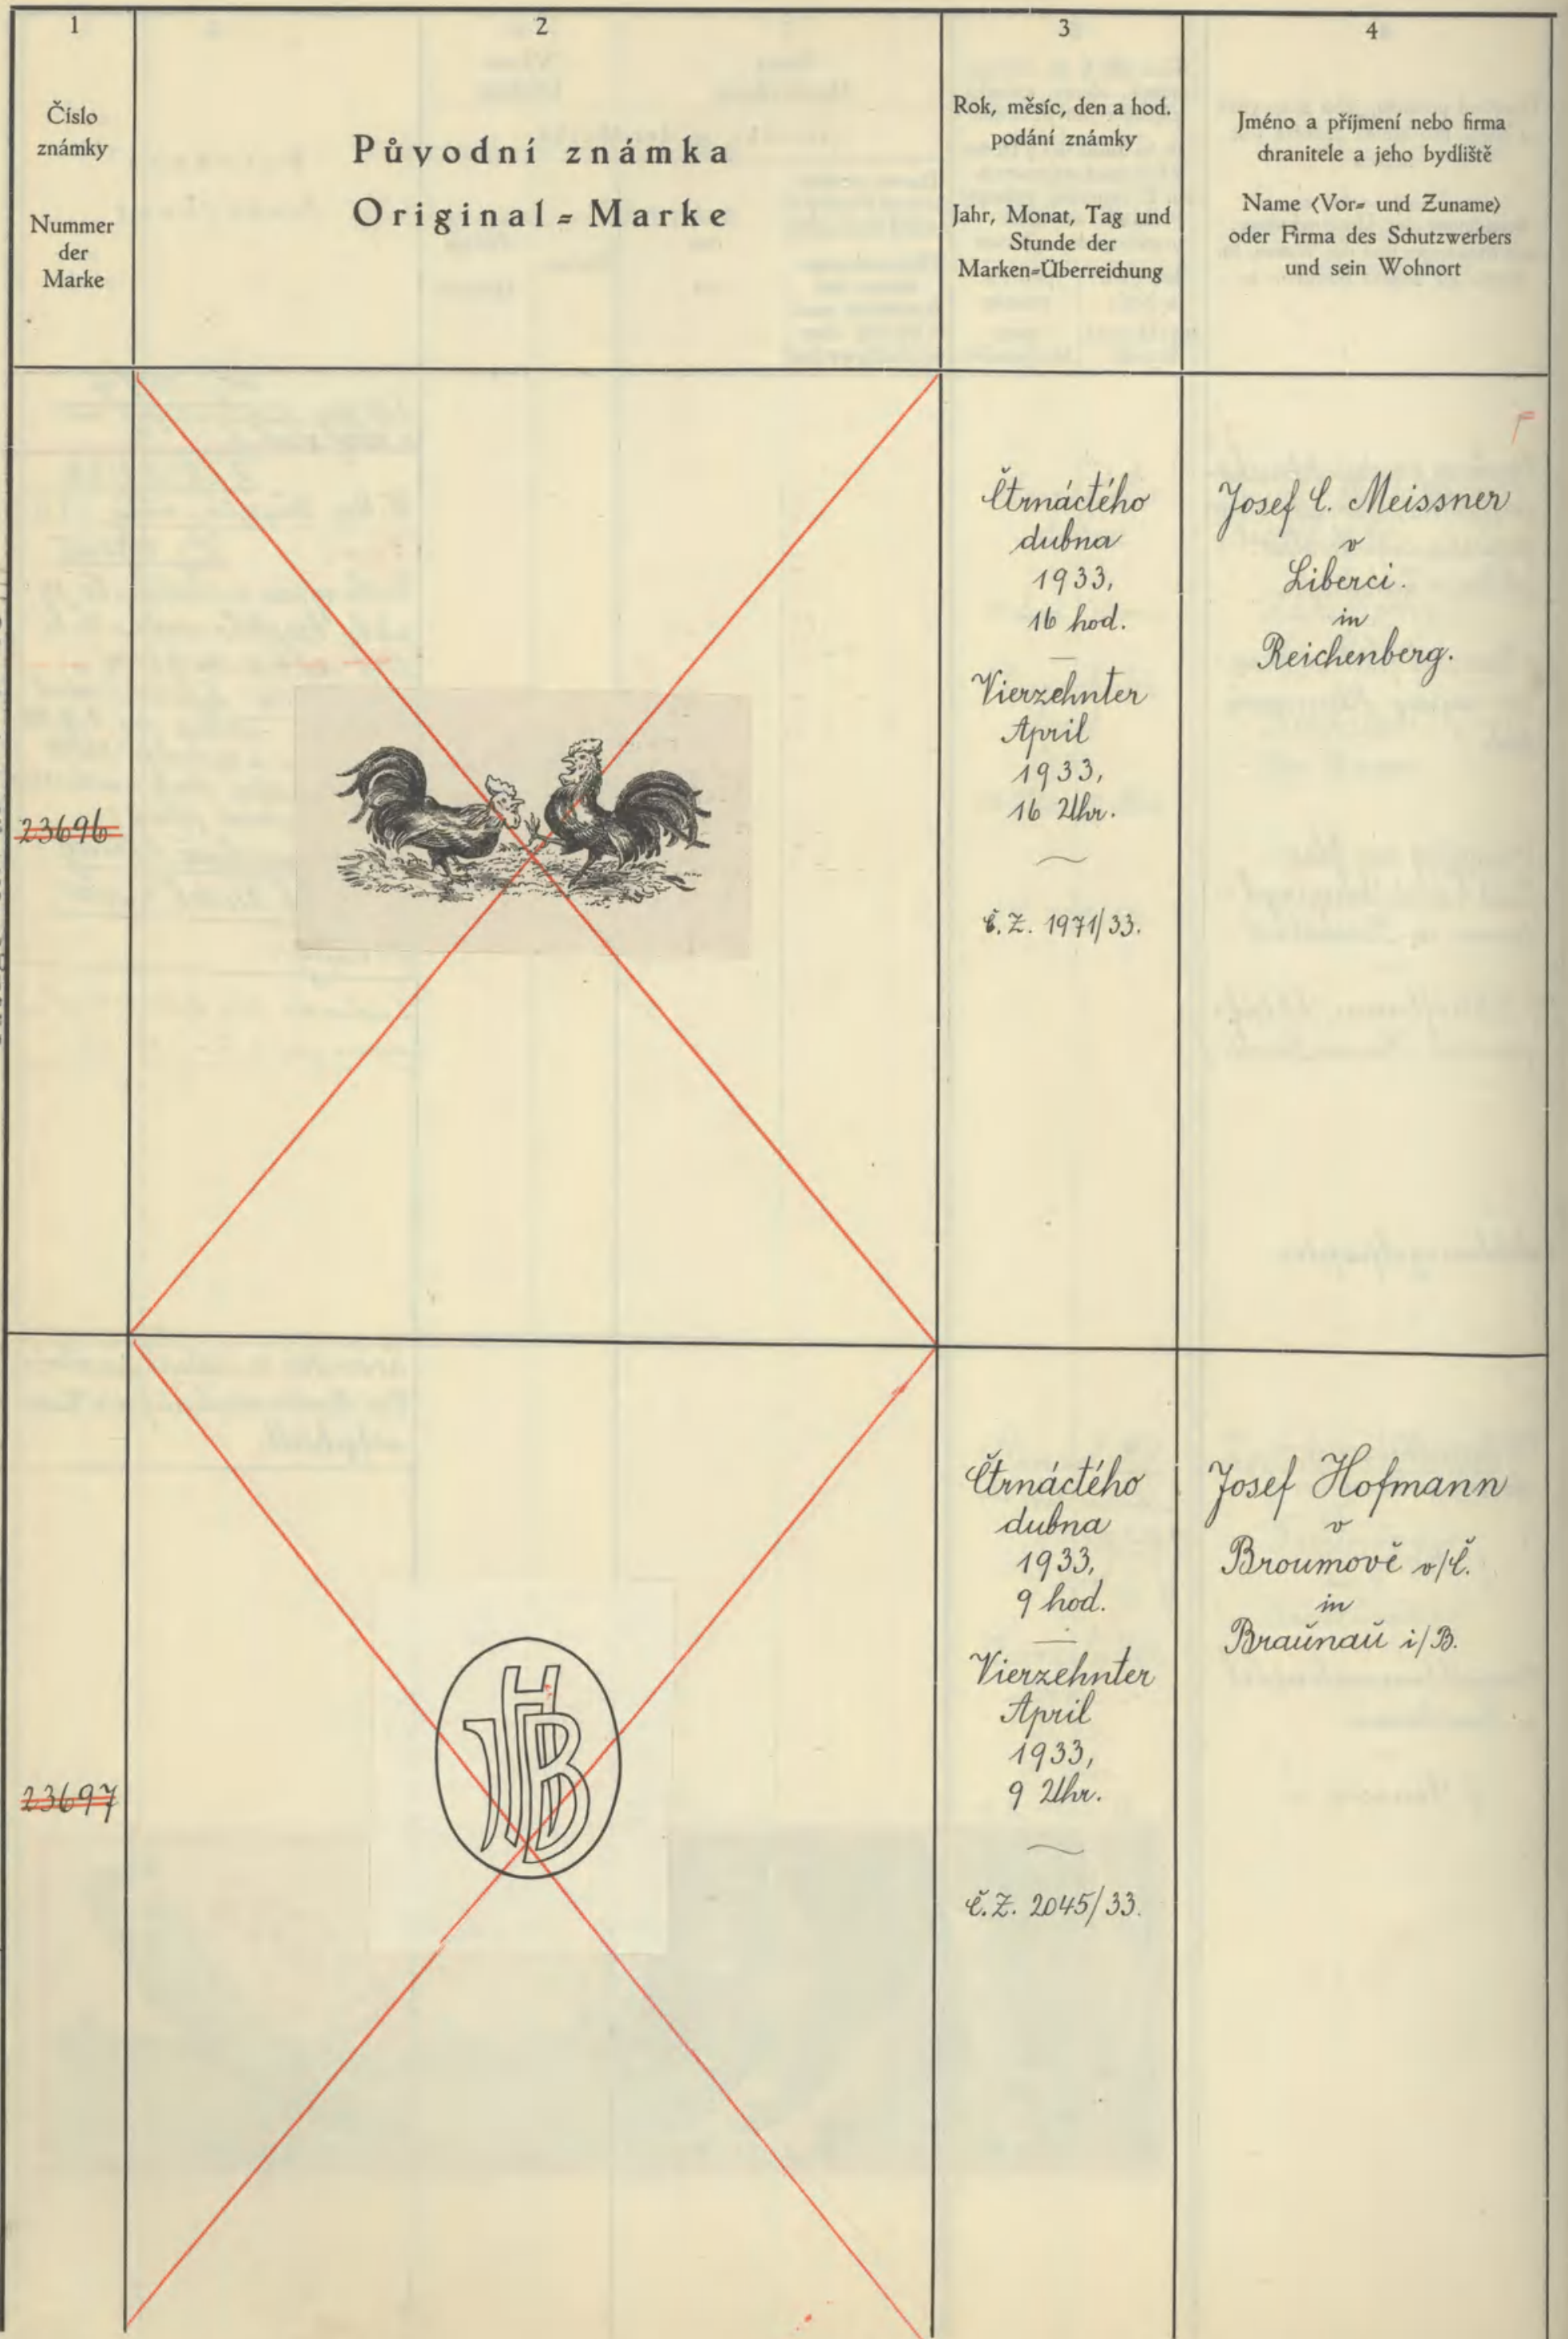 1
Číslo
známky
Nummer
der
Marke
2
Původní známka
Original=Marke
3
Rok, měsíc, den a hod.
podání známky
Jahr, Monat, Tag und
Stunde der
Marken=Überreichung
4
Jméno a příjmení nebo firma
chranitele a jeho bydliště
Name (Vor= und Zuname)
oder Firma des Schutzwerbers
und sein Wohnort
23696
Čtrnáctého
dubna
1933,
16 hod.
Vierzehnter
April
1933,
16 Uhr.
č.Z. 1971/33.
Josef C. Meissner
v
Liberci.
in
Reichenberg.
23697
JHB
Čtrnáctého
dubna
1933,
9 hod.
Vierzehnter
April
1933,
9 Uhr.
č.Z. 2045/33.
Josef Hofmann
v
Broumově v/Č.
in
Braunau i/B.